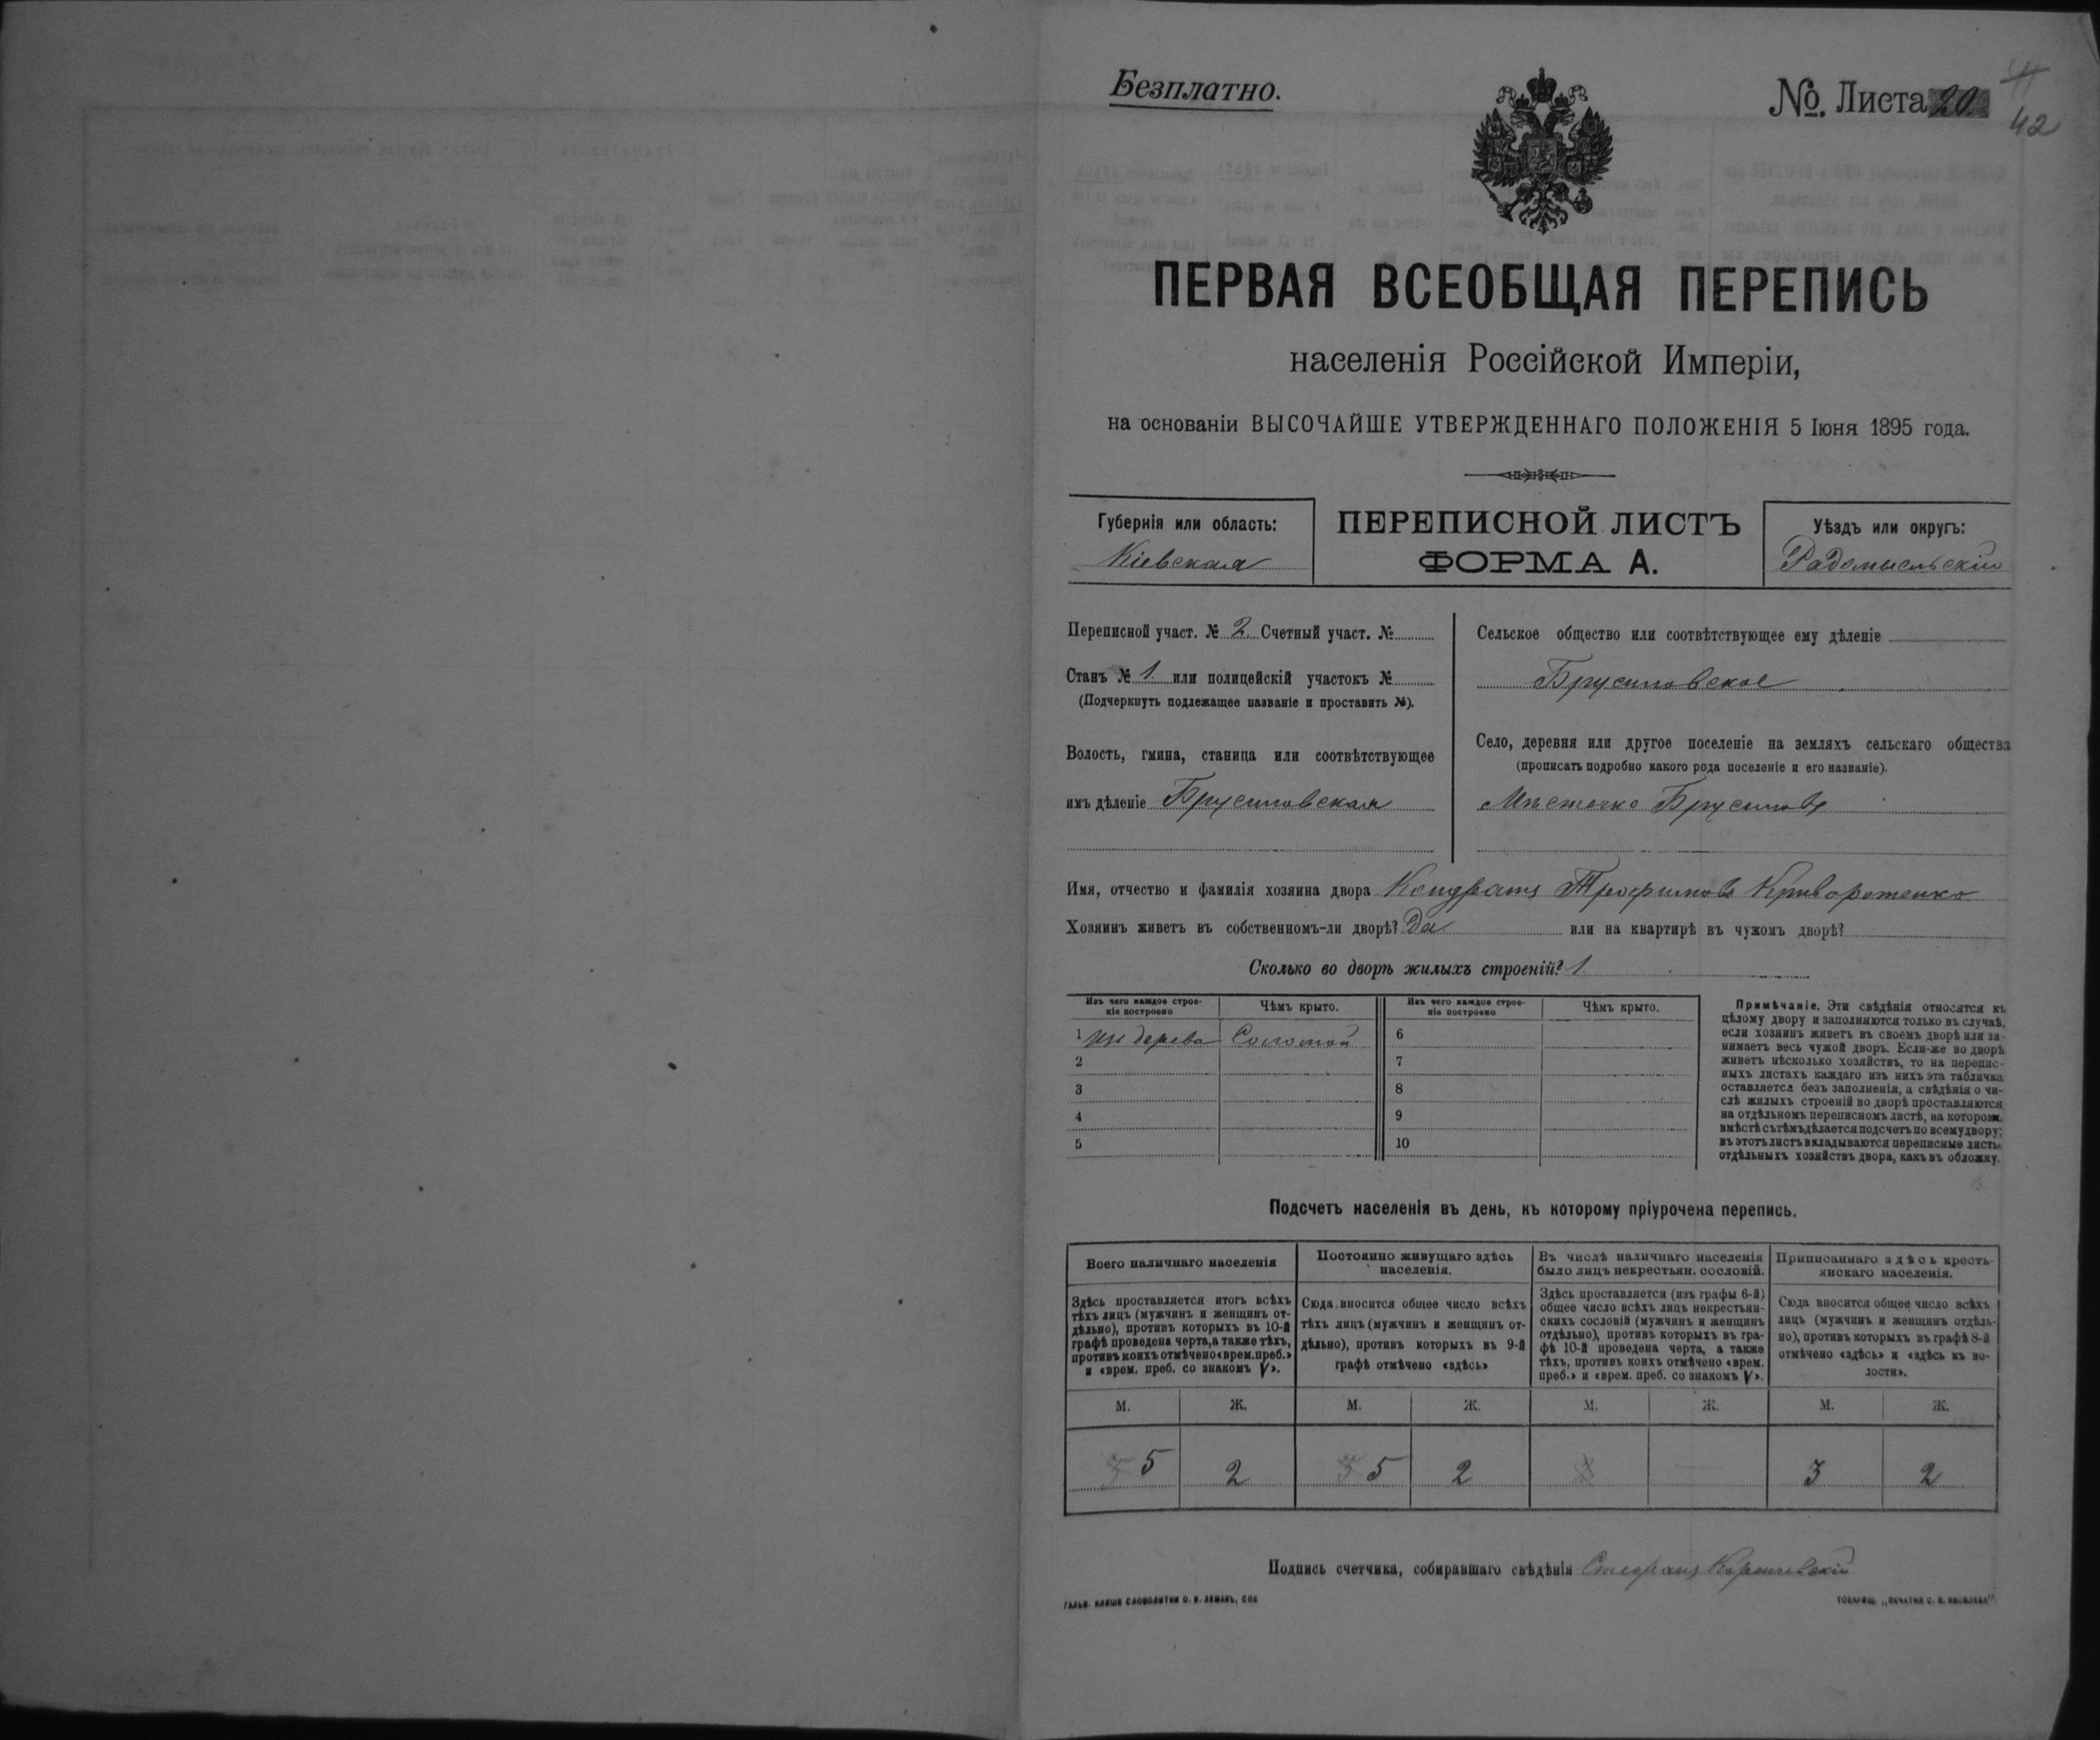 Безплатно.
№. Листа 20.
42
ПЕРВАЯ ВСЕОБЩАЯ ПЕРЕПИСЬ
населенія Россійской Имперіи,
на основаніи ВЫСОЧАЙШЕ УТВЕРЖДЕННАГО ПОЛОЖЕНІЯ 5 Іюня 1895 года.
Губернія или область:
Кіевская
ПЕРЕПИСНОЙ ЛИСТЪ
ФОРМА А.
Уѣздъ или округъ:
Радомысльскій
Переписной участ. № 2 Счетный участ. №
Станъ № 1. или полицейскій участокъ №
(Подчеркнуть подлежащее названіе и проставить №).
Волость, гмина, станица или соотвѣтствующее
имъ дѣленіе Брусиловская
Сельское общество или соотвѣтствующее ему дѣленіе
Брусиловское
Село, деревня или другое поселеніе на земляхъ сельскаго общества
(прописать подробно какого рода поселеніе и его названіе).
Мѣстечко Брусиловъ
Имя, отчество и фамилія хозяина двора Кондратъ Трофимовъ Криворотенко
Хозяинъ живетъ въ собственномъ-ли дворѣ? Да или на квартирѣ въ чужомъ дворѣ?
Сколько во дворѣ жилыхъ строеній? 1
Изъ чего каждое строе-
ніе построено
Чѣмъ крыто.
Изъ чего каждое строе-
ніе построено
Чѣмъ крыто.
1 изъ дерева Соломой 6
2 7
3 8
4 9
5 10
Примѣчаніе. Эти свѣдѣнія относятся къ
цѣлому двору и заполняются только въ случаѣ,
если хозяинъ живетъ въ своемъ дворѣ или за-
нимаетъ весь чужой дворъ. Если-же во дворѣ
живетъ нѣсколько хозяйствъ, то на перепис-
ныхъ листахъ каждаго изъ нихъ эта табличка
оставляется безъ заполненія, а свѣдѣнія о чи-
слѣ жилыхъ строеній во дворѣ проставляются
на отдѣльномъ переписномъ листѣ, на которомъ
вмѣстѣ съ тѣмъ дѣлается подсчетъ по всему двору;
въ этотъ листъ вкладываются переписные листы
отдѣльныхъ хозяйствъ двора, какъ въ обложку.
Подсчетъ населенія въ день, къ которому пріурочена перепись.
Всего наличнаго населенія
Здѣсь проставляется итогъ всѣхъ
тѣхъ лицъ (мужчинъ и женщинъ от-
дѣльно), противъ которыхъ въ 10-й
графѣ проведена черта, а также тѣхъ,
противъ коихъ отмѣчено «врем. преб.»
и «врем. преб. со знакомъ V».
Постоянно живущаго здѣсь
населенія.
Сюда вносится общее число всѣхъ
тѣхъ лицъ (мужчинъ и женщинъ от-
дѣльно), противъ которыхъ въ 9-й
графѣ отмѣчено «здѣсь»
Въ числѣ наличнаго населенія
было лицъ некрестьян. сословій.
Здѣсь проставляется (изъ графы 6-й)
общее число всѣхъ лицъ некрестьян-
скихъ сословій (мужчинъ и женщинъ
отдѣльно), противъ которыхъ въ гра-
фѣ 10-й проведена черта, а также
тѣхъ, противъ коихъ отмѣчено «врем.
преб.» и «врем. преб. со знакомъ V».
Приписаннаго здѣсь кресть-
янскаго населенія.
Сюда вносится общее число всѣхъ
лицъ (мужчинъ и женщинъ отдѣль-
но), противъ которыхъ въ графѣ 8-й
отмѣчено «здѣсь» и «здѣсь къ во-
лости».
М. Ж. М. Ж. М. Ж. М. Ж.
5 2 5 2 3 2
Подпись счетчика, собиравшаго свѣдѣнія Стефанъ
ГАЛЬВ. КЛИШЕ СЛОВОЛИТНИ О. И. ЛЕМАНЪ, СПБ
ТОВАРИЩ. „ПЕЧАТНЯ С. П. ЯКОВЛЕВА“